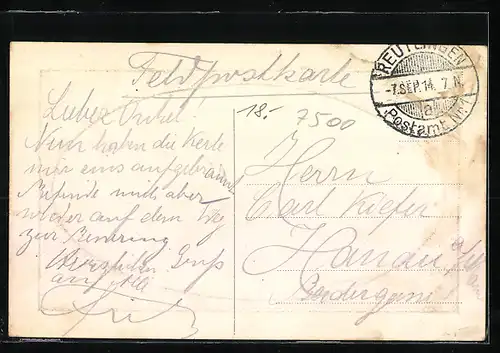 Feldpostkarte
REUTLINGEN
-7.SEP.14. 7 N.
a
Postamt Nr. 1
18.-
7500
Lieber Onkel!
Nun haben die Kerle
mir eins aufgebrannt
Befinde mich aber
wieder auf dem Weg
zur Besserung
Herzlichen Gruß
an Alle
Herrn
Carl Kiefer
Hanau